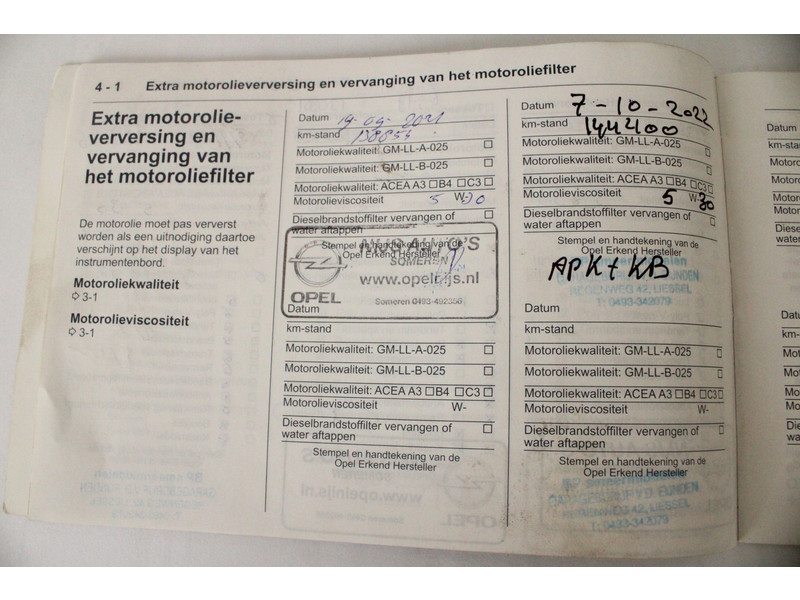 4 - 1 Extra motorolieverversing en vervanging van het motoroliefilter
Extra motorolie-
verversing en
vervanging van
het motoroliefilter
De motorolie moet pas ververst
worden als een uitnodiging daartoe
verschijnt op het display van het
instrumentenbord.
Motoroliekwaliteit
➪ 3-1
Motorolieviscositeit
➪ 3-1
Datum 19-09-2021
km-stand 138853
Motoroliekwaliteit: GM-LL-A-025
Motoroliekwaliteit: GM-LL-B-025
Motoroliekwaliteit: ACEA A3 □B4 □C3□
Motorolieviscositeit 5 W-30
Dieselbrandstoffilter vervangen of
water aftappen
Stempel en handtekening van de
Opel Erkend Hersteller
AUTO'S
SOMEREN
www.opelnijs.nl
OPEL
Someren 0493-492350
Datum
km-stand
Motoroliekwaliteit: GM-LL-A-025
Motoroliekwaliteit: GM-LL-B-025
Motoroliekwaliteit: ACEA A3 □B4 □C3□
Motorolieviscositeit W-
Dieselbrandstoffilter vervangen of
water aftappen
Stempel en handtekening van de
Opel Erkend Hersteller
Datum 7-10-2022
km-stand 144400
Motoroliekwaliteit: GM-LL-A-025
Motoroliekwaliteit: GM-LL-B-025
Motoroliekwaliteit: ACEA A3 □B4 □C3□
Motorolieviscositeit 5 W-30
Dieselbrandstoffilter vervangen of
water aftappen
Stempel en handtekening van de
Opel Erkend Hersteller
APK + KB
42, LIESSEL
T: 0493-342079
Datum
km-stand
Motoroliekwaliteit: GM-LL-A-025
Motoroliekwaliteit: GM-LL-B-025
Motoroliekwaliteit: ACEA A3 □B4 □C3□
Motorolieviscositeit W-
Dieselbrandstoffilter vervangen of
water aftappen
Stempel en handtekening van de
Opel Erkend Hersteller
42, LIESSEL
T: 0493-342079